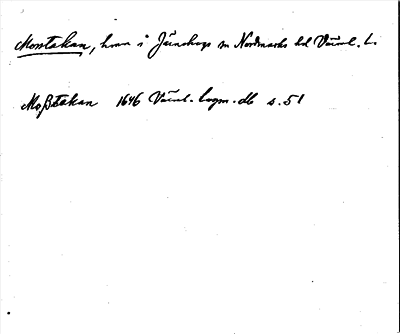 Mosstakan, hmn i Järnskogs sn Nordmarks hd Värml. l.
Moßtakan 1646 Värml. lagm. db s. 51